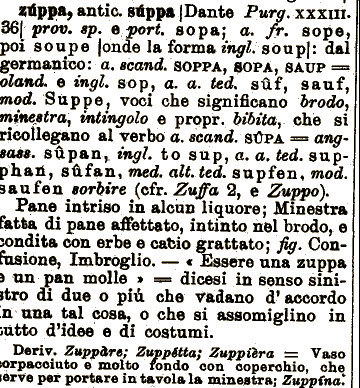 zúppa, antic. súppa |Dante Purg. XXXIII.
36| prov. sp. e port. sopa; a. fr. sope,
poi soupe |onde la forma ingl. soup|: dal
germanico: a. scand. SOPPA, SOPA, SAUP =
oland. e ingl. sop, a. a. ted. sûf, sauf,
mod. Suppe, voci che significano brodo,
minestra, intingolo e propr. bibita, che si
ricollegano al verbo a. scand. SÛPA = ang-
sass. sûpan, ingl. to sup, a. a. ted. sup-
phan, sûfan, med. alt. ted. supfen, mod.
saufen sorbire (cfr. Zuffa 2, e Zuppo).
Pane intriso in alcun liquore; Minestra
fatta di pane affettato, intinto nel brodo, e
condita con erbe e cacio grattato; fig. Con-
fusione, Imbroglio. — « Essere una zuppa
e un pan molle » = dicesi in senso sini-
stro di due o piú che vadano d'accordo
in una tal cosa, o che si assomiglino in
tutto d'idee e di costumi.
Deriv. Zuppàre; Zuppétta; Zuppièra = Vaso
corpacciuto e molto fondo con coperchio, che
serve per portare in tavola la minestra; Zuppína.